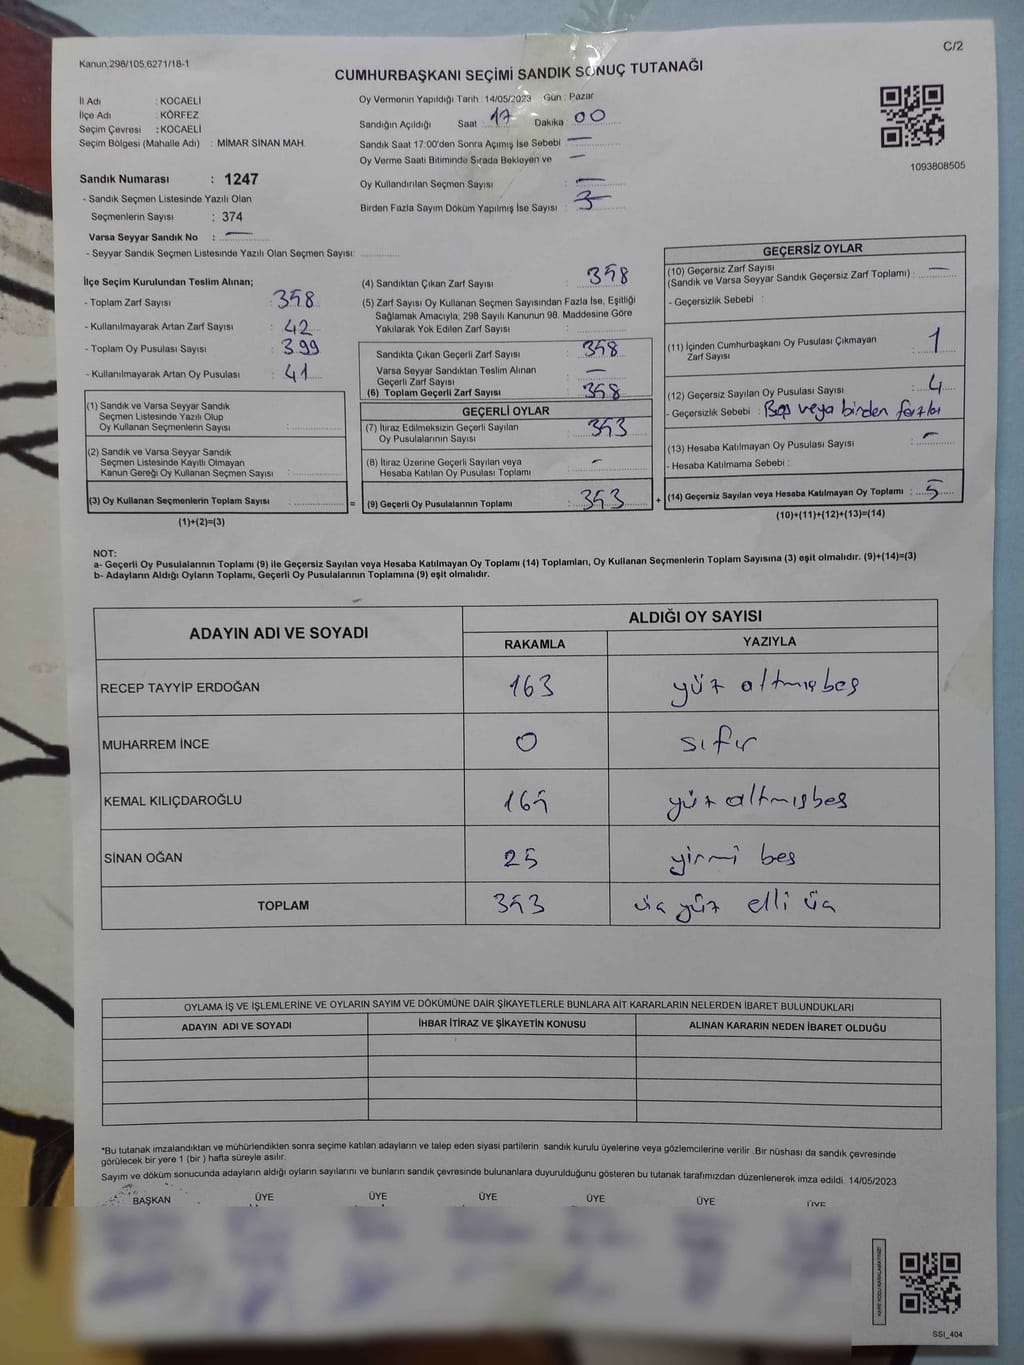 C/2
Kanun;298/105;6271/18-1
CUMHURBAŞKANI SEÇİMİ SANDIK SONUÇ TUTANAĞI
İl Adı : KOCAELİ
İlçe Adı : KÖRFEZ
Seçim Çevresi : KOCAELİ
Seçim Bölgesi (Mahalle Adı) : MİMAR SİNAN MAH.
Sandık Numarası : 1247
- Sandık Seçmen Listesinde Yazılı Olan
Seçmenlerin Sayısı : 374
Varsa Seyyar Sandık No : —
- Seyyar Sandık Seçmen Listesinde Yazılı Olan Seçmen Sayısı:
Oy Vermenin Yapıldığı Tarih : 14/05/2023 Gün : Pazar
Sandığın Açıldığı Saat : 17 Dakika : 00
Sandık Saat 17:00'den Sonra Açımış İse Sebebi : —
Oy Verme Saati Bitiminde Sırada Bekleyen ve —
Oy Kullandırılan Seçmen Sayısı : —
Birden Fazla Sayım Döküm Yapılmış İse Sayısı :
1093808505
İlçe Seçim Kurulundan Teslim Alınan;
- Toplam Zarf Sayısı
- Kullanılmayarak Artan Zarf Sayısı : 42
- Toplam Oy Pusulası Sayısı : 399
- Kullanılmayarak Artan Oy Pusulası : 41
(1) Sandık ve Varsa Seyyar Sandık
Seçmen Listesinde Yazılı Olup
Oy Kullanan Seçmenlerin Sayısı :
(2) Sandık ve Varsa Seyyar Sandık
Seçmen Listesinde Kayıtlı Olmayan
Kanun Gereği Oy Kullanan Seçmen Sayısı :
(3) Oy Kullanan Seçmenlerin Toplam Sayısı : =
(1)+(2)=(3)
(4) Sandıktan Çıkan Zarf Sayısı : 358
(5) Zarf Sayısı Oy Kullanan Seçmen Sayısından Fazla İse, Eşitliği
Sağlamak Amacıyla; 298 Sayılı Kanunun 98. Maddesine Göre
Yakılarak Yok Edilen Zarf Sayısı :
Sandıkta Çıkan Geçerli Zarf Sayısı : 358
Varsa Seyyar Sandıktan Teslim Alınan
Geçerli Zarf Sayısı : —
(6) Toplam Geçerli Zarf Sayısı : 358
GEÇERLİ OYLAR
(7) İtiraz Edilmeksizin Geçerli Sayılan
Oy Pusulalarının Sayısı : 353
(8) İtiraz Üzerine Geçerli Sayılan veya
Hesaba Katılan Oy Pusulası Toplamı : -
(9) Geçerli Oy Pusulalarının Toplamı : 353 +
GEÇERSİZ OYLAR
(10) Geçersiz Zarf Sayısı
(Sandık ve Varsa Seyyar Sandık Geçersiz Zarf Toplamı) : —
- Geçersizlik Sebebi :
(11) İçinden Cumhurbaşkanı Oy Pusulası Çıkmayan
Zarf Sayısı : 1
(12) Geçersiz Sayılan Oy Pusulası Sayısı : 4
- Geçersizlik Sebebi : Boş veya birden fazla
(13) Hesaba Katılmayan Oy Pusulası Sayısı : -
- Hesaba Katılmama Sebebi :
(14) Geçersiz Sayılan veya Hesaba Katılmayan Oy Toplamı : 5
(10)+(11)+(12)+(13)=(14)
NOT:
a- Geçerli Oy Pusulalarının Toplamı (9) ile Geçersiz Sayılan veya Hesaba Katılmayan Oy Toplamı (14) Toplamları, Oy Kullanan Seçmenlerin Toplam Sayısına (3) eşit olmalıdır. (9)+(14)=(3)
b- Adayların Aldığı Oyların Toplamı, Geçerli Oy Pusulalarının Toplamına (9) eşit olmalıdır.
ADAYIN ADI VE SOYADI ALDIĞI OY SAYISI
RAKAMLA YAZIYLA
RECEP TAYYİP ERDOĞAN 163 yüz altmış
MUHARREM İNCE 0 sıfır
KEMAL KILIÇDAROĞLU 165 yüz altmış beş
SİNAN OĞAN 25 yirmi beş
TOPLAM 353 üç yüz elli üç
OYLAMA İŞ VE İŞLEMLERİNE VE OYLARIN SAYIM VE DÖKÜMÜNE DAİR ŞİKAYETLERLE BUNLARA AİT KARARLARIN NELERDEN İBARET BULUNDUKLARI
ADAYIN ADI VE SOYADI İHBAR İTİRAZ VE ŞİKAYETİN KONUSU ALINAN KARARIN NEDEN İBARET OLDUĞU
*Bu tutanak imzalandıktan ve mühürlendikten sonra seçime katılan adayların ve talep eden siyasi partilerin sandık kurulu üyelerine veya gözlemcilerine verilir .Bir nüshası da sandık çevresinde
görülecek bir yere 1 (bir ) hafta süreyle asılır.
Sayım ve döküm sonucunda adayların aldığı oyların sayılarını ve bunların sandık çevresinde bulunanlara duyurulduğunu gösteren bu tutanak tarafımızdan düzenlenerek imza edildi. 14/05/2023
BAŞKAN ÜYE ÜYE ÜYE ÜYE ÜYE ÜYE
SSI_404